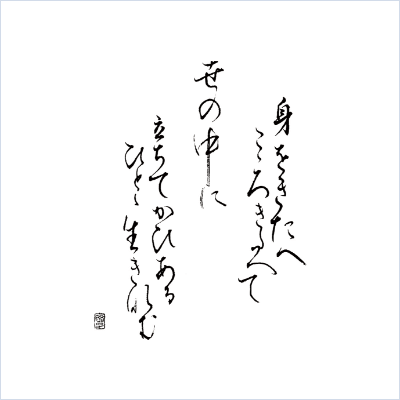 身をきたへ
こゝろきよめて
世の中に
立ちてかひある
ひとゝ生きなむ